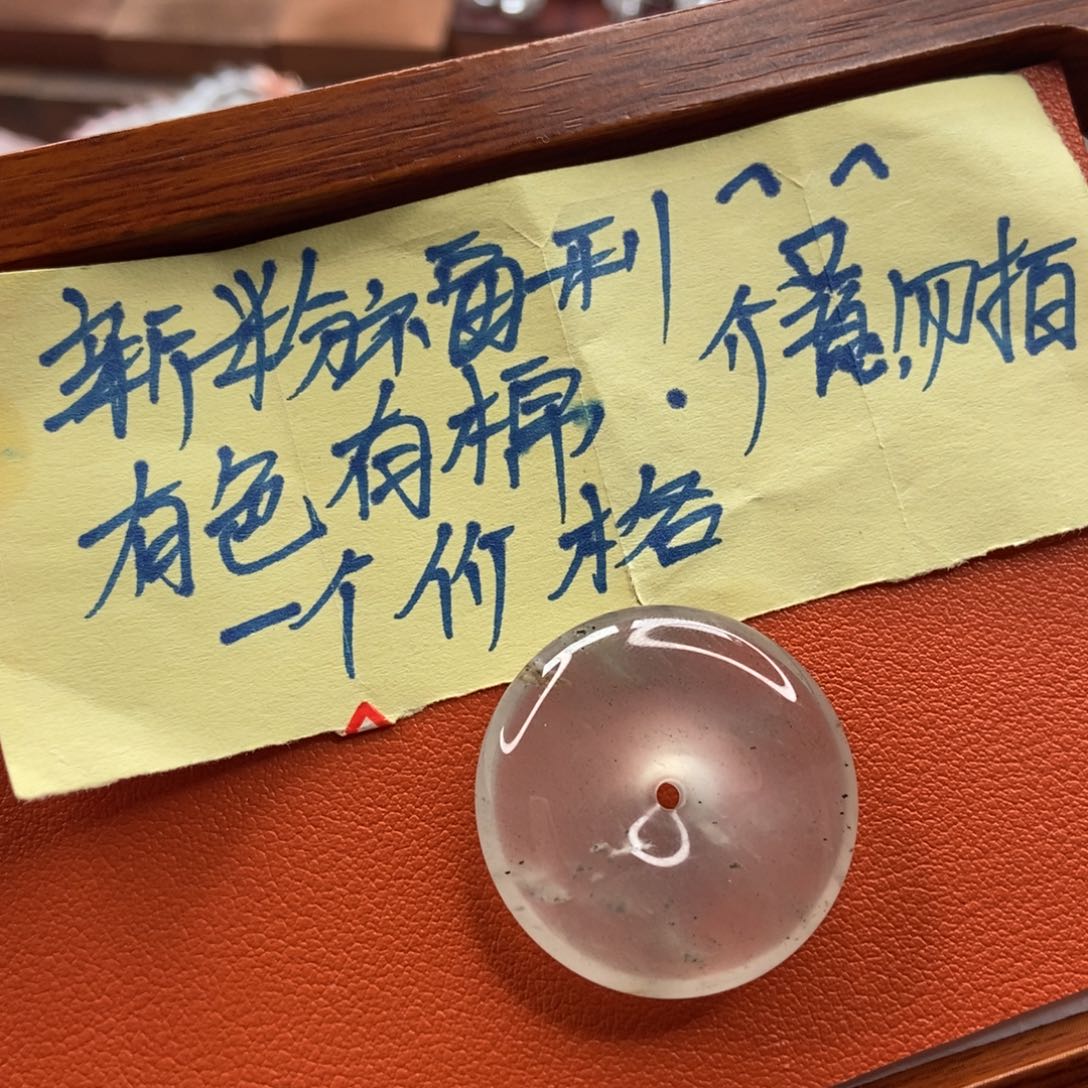 新粉丝福利! ^ ^
有色有棉.介意勿拍
一个价格